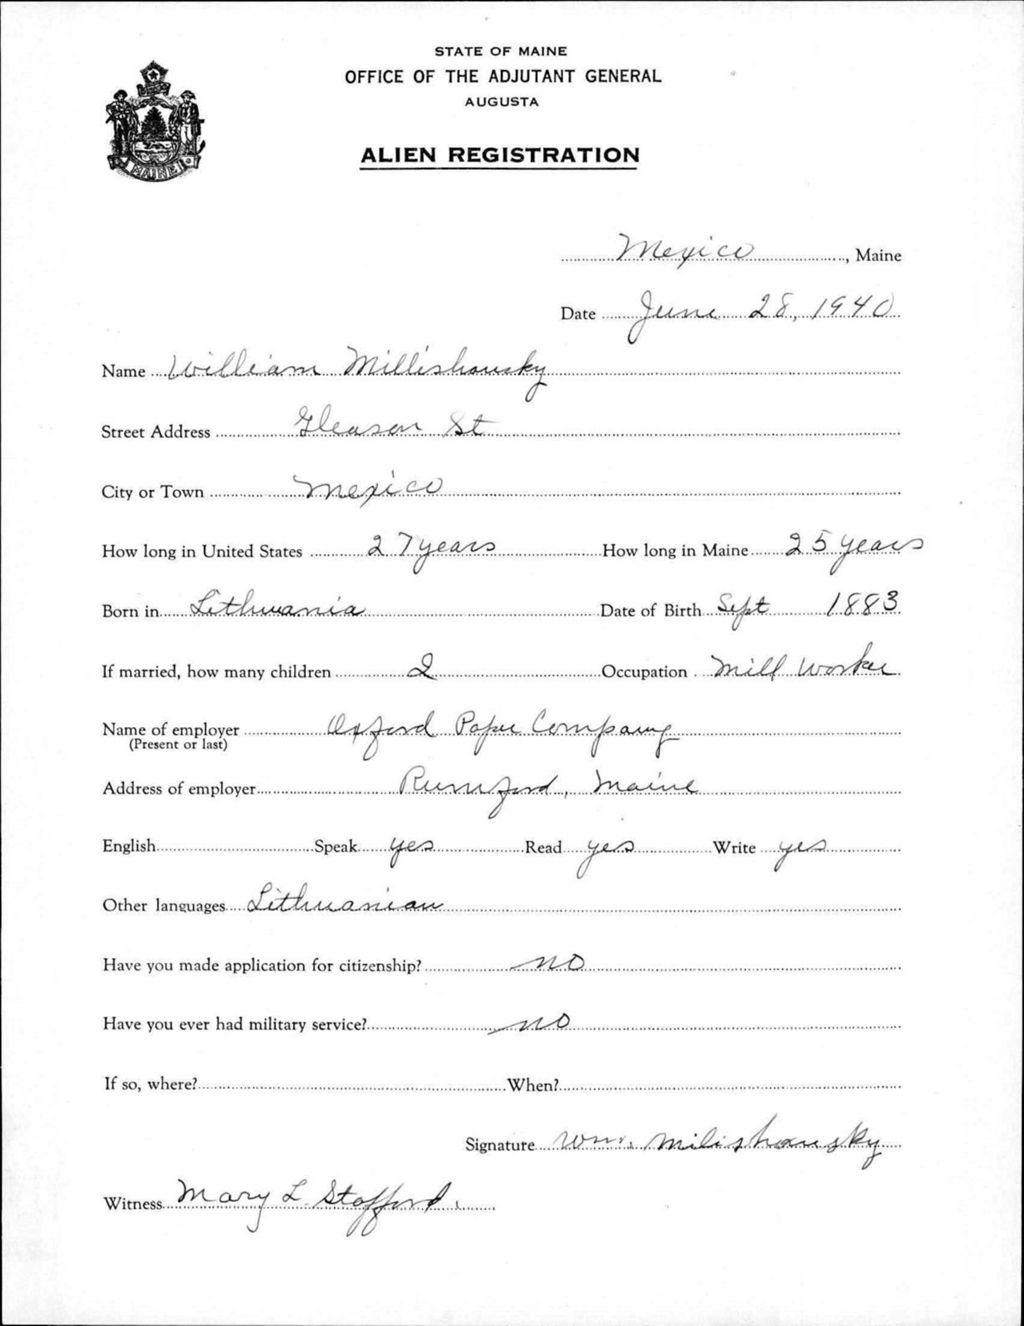 STATE OF MAINE
OFFICE OF THE ADJUTANT GENERAL
AUGUSTA
ALIEN REGISTRATION
MAINE
Mexico, Maine
Date June 28, 1940
Name William Millishousky
Street Address Gleason St
City or Town Mexico
How long in United States 27 years How long in Maine 25 years
Born in Lithuania Date of Birth Sept 1883
If married, how many children 2 Occupation Mill Worker
Name of employer Oxford Paper Company
(Present or last)
Address of employer Rumford, Maine
English Speak yes Read yes Write yes
Other languages Lithuanian
Have you made application for citizenship? no
Have you ever had military service? no
If so, where? When?
Signature Wm. Milishousky
Witness Mary L Stafford.